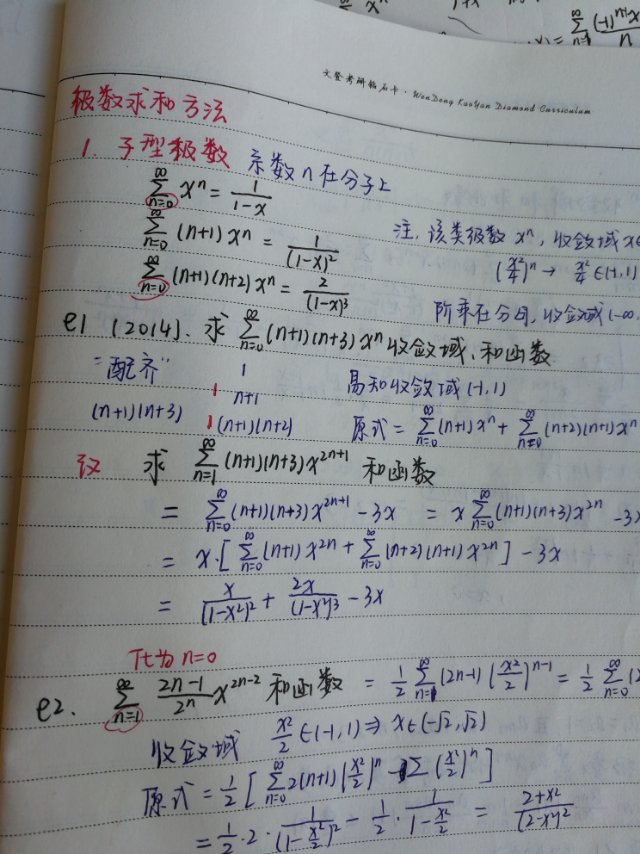 ∑ xⁿ
∑_{n=1} (-1)ⁿ⁺¹x / n
文登考研钻石卡 · WenDeng KaoYan Diamond Curriculum
级数求和方法
1. 子型级数 系数n在分子上
∑_{n=0}^∞ xⁿ = 1/(1-x)
∑_{n=0}^∞ (n+1)xⁿ = 1/(1-x)²
注, 该类级数 xⁿ, 收敛域 x∈
∑_{n=0}^∞ (n+1)(n+2)xⁿ = 2/(1-x)³
(x²/4)ⁿ → x²/4 ∈(-1,1)
阶乘在分母, 收敛域(-∞,
e1 (2014). 求 ∑_{n=0}^∞ (n+1)(n+3)xⁿ 收敛域, 和函数
"配齐" 1
1 n+1 易知收敛域(-1,1)
(n+1)(n+3) 1 (n+1)(n+2) 原式 = ∑_{n=0}^∞ (n+1)xⁿ + ∑_{n=0}^∞ (n+2)(n+1)xⁿ
改 求 ∑_{n=1}^∞ (n+1)(n+3)x²ⁿ⁺¹ 和函数
= ∑_{n=0}^∞ (n+1)(n+3)x²ⁿ⁺¹ - 3x = x∑_{n=0}^∞ (n+1)(n+3)x²ⁿ - 3x
= x·[∑_{n=0}^∞ (n+1)x²ⁿ + ∑_{n=0}^∞ (n+2)(n+1)x²ⁿ] - 3x
= x/(1-x²)² + 2x/(1-x²)³ - 3x
化为n=0
e2. ∑_{n=1}^∞ (2n-1)/2ⁿ x²ⁿ⁻² 和函数 = 1/2 ∑_{n=1}^∞ (2n-1)(x²/2)ⁿ⁻¹ = 1/2 ∑_{n=0}^∞ (2
收敛域 x²/2 ∈(-1,1) ⇒ x∈(-√2,√2)
原式 = 1/2 [∑_{n=0}^∞ 2(n+1)(x²/2)ⁿ - ∑(x²/2)ⁿ]
= 1/2 · 2 · 1/(1-x²/2)² - 1/2 · 1/(1-x²/2) = (2+x²)/(2-x²)²